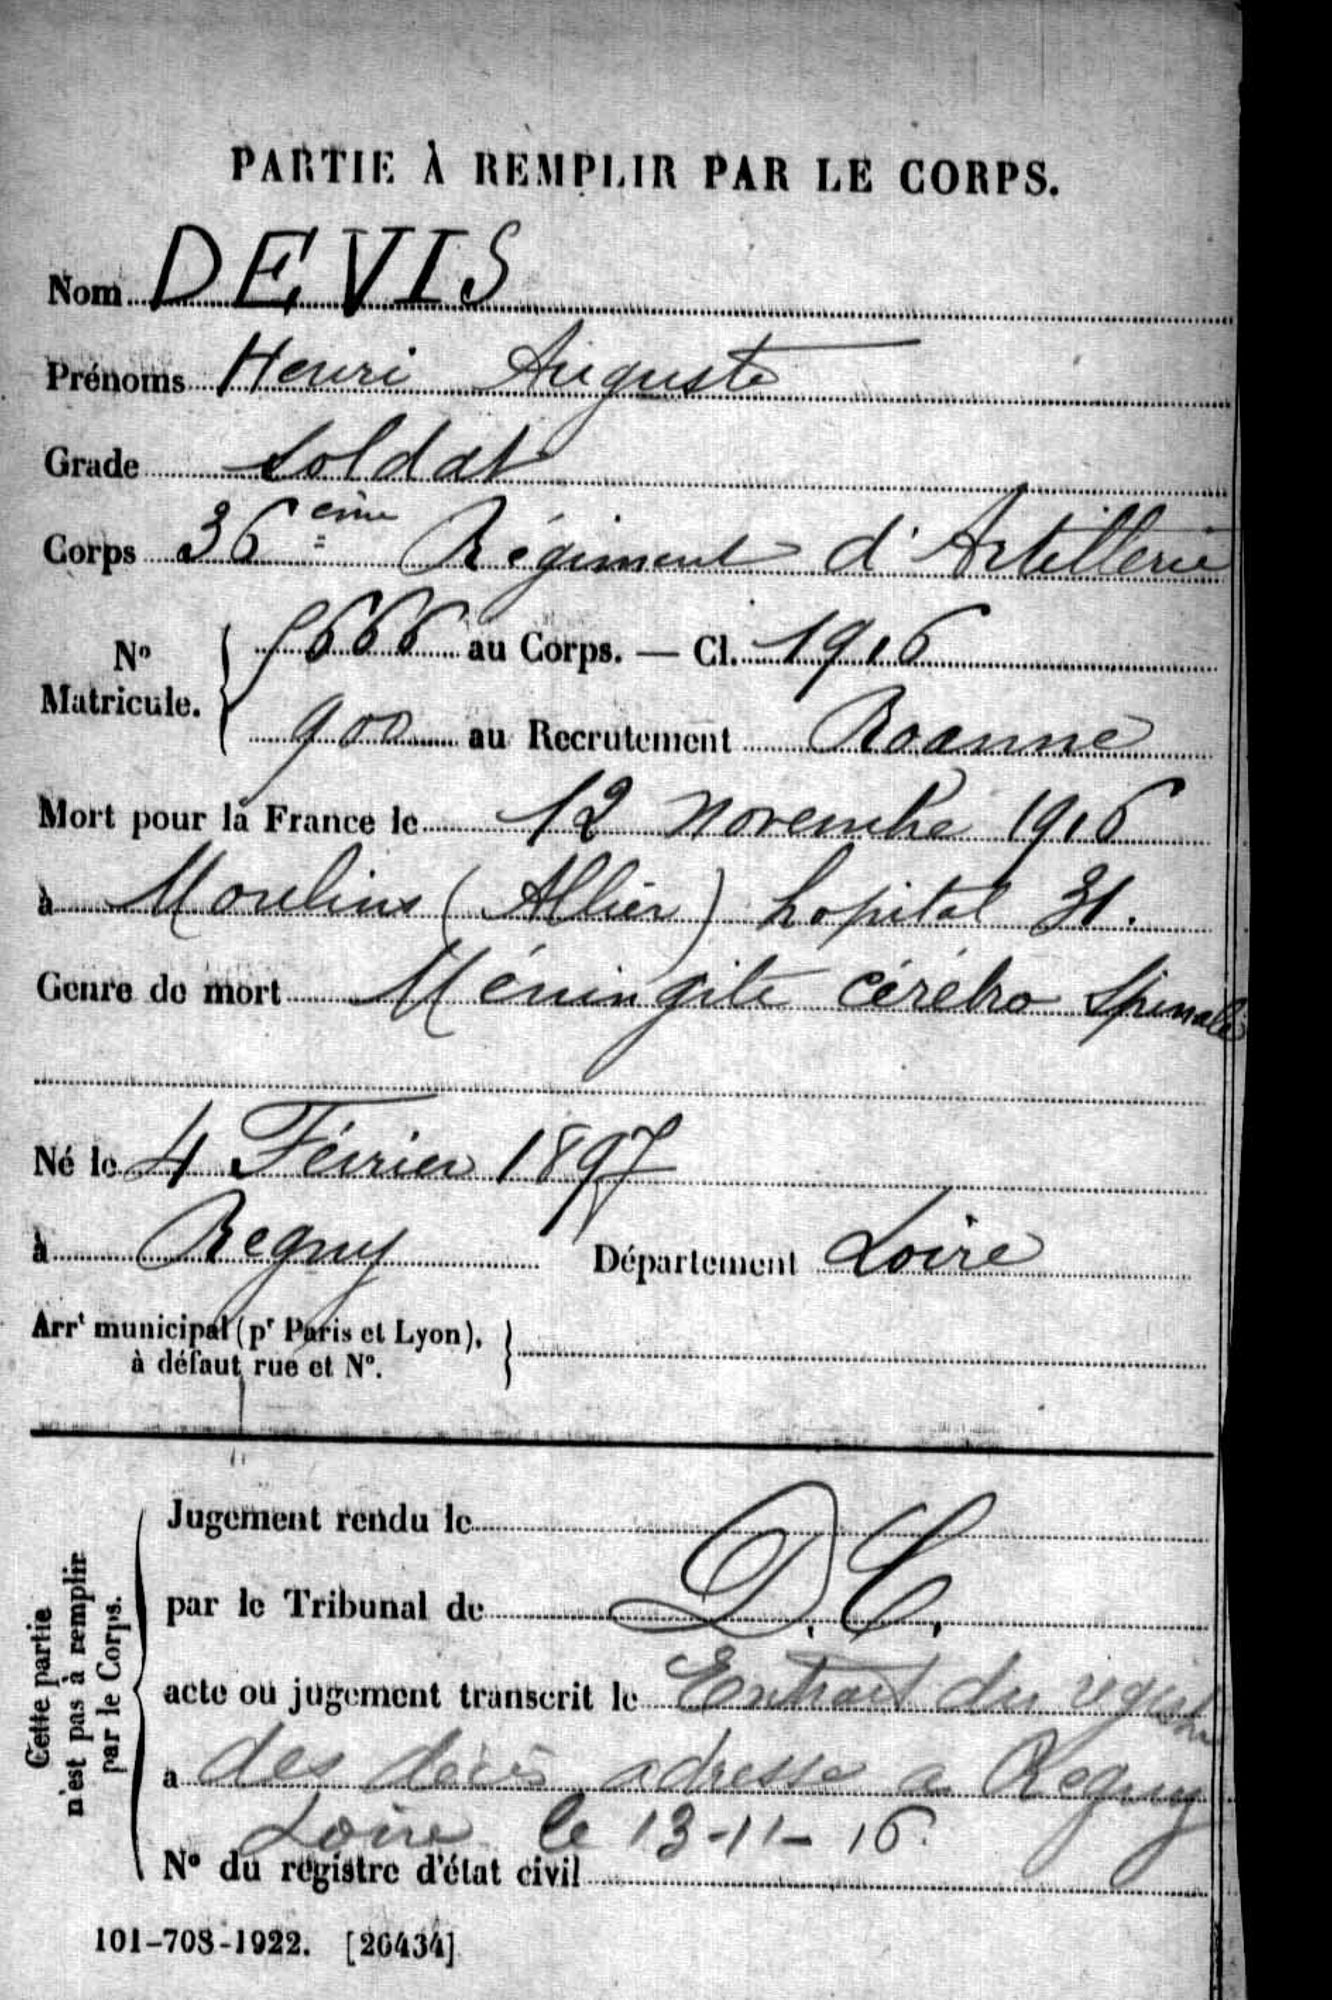 PARTIE À REMPLIR PAR LE CORPS.
Nom DEVIS
Prénoms Henri Auguste
Grade Soldat
Corps 36ème Régiment d'Artillerie
No Matricule. { 9666 au Corps. — Cl. 1916
900 au Recrutement Roanne
Mort pour la France le 12 novembre 1916
à Moulins (Allier) hopital 31.
Genre de mort Méningite cérébro Spinale
Né le 4 Février 1897
à Regny Département Loire
Arrt municipal (pr Paris et Lyon), }
à défaut rue et No.
Cette partie
n'est pas à remplir
par le Corps.
Jugement rendu le
par le Tribunal de D.C.
acte ou jugement transcrit le Extrait du registre
a des décès adresse a Regny
Loire le 13-11-16.
No du registre d'état civil
101-708-1922. [26434]